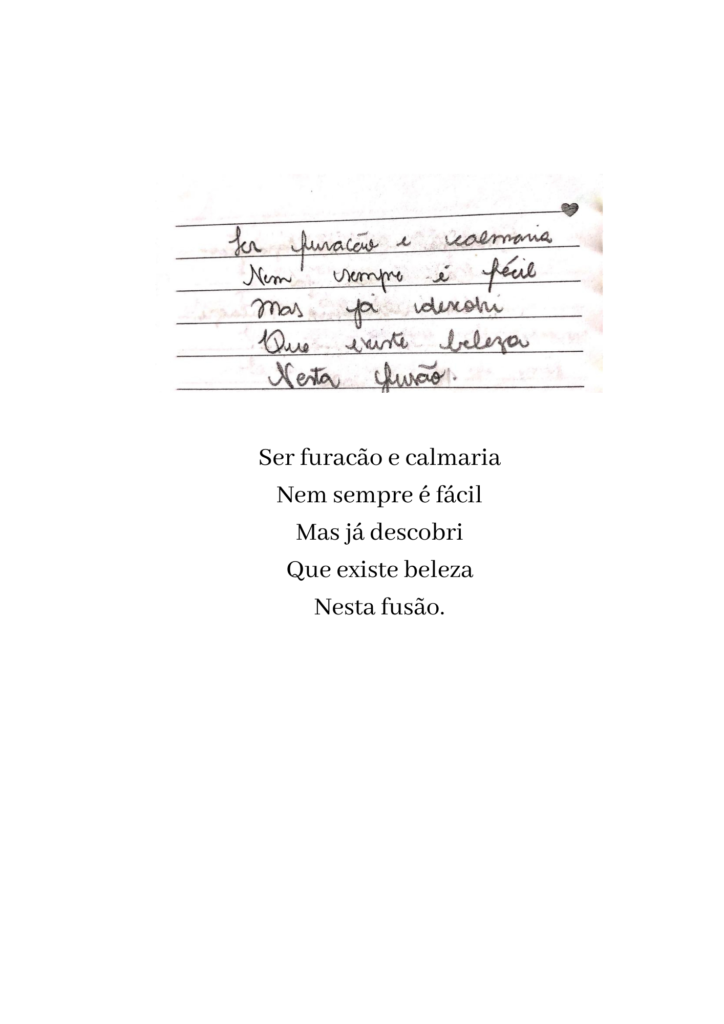 Ser furacão e calmaria
Nem sempre é fácil
Mas já descobri
Que existe beleza
Nesta fusão.
Ser furacão e calmaria
Nem sempre é fácil
Mas já descobri
Que existe beleza
Nesta fusão.